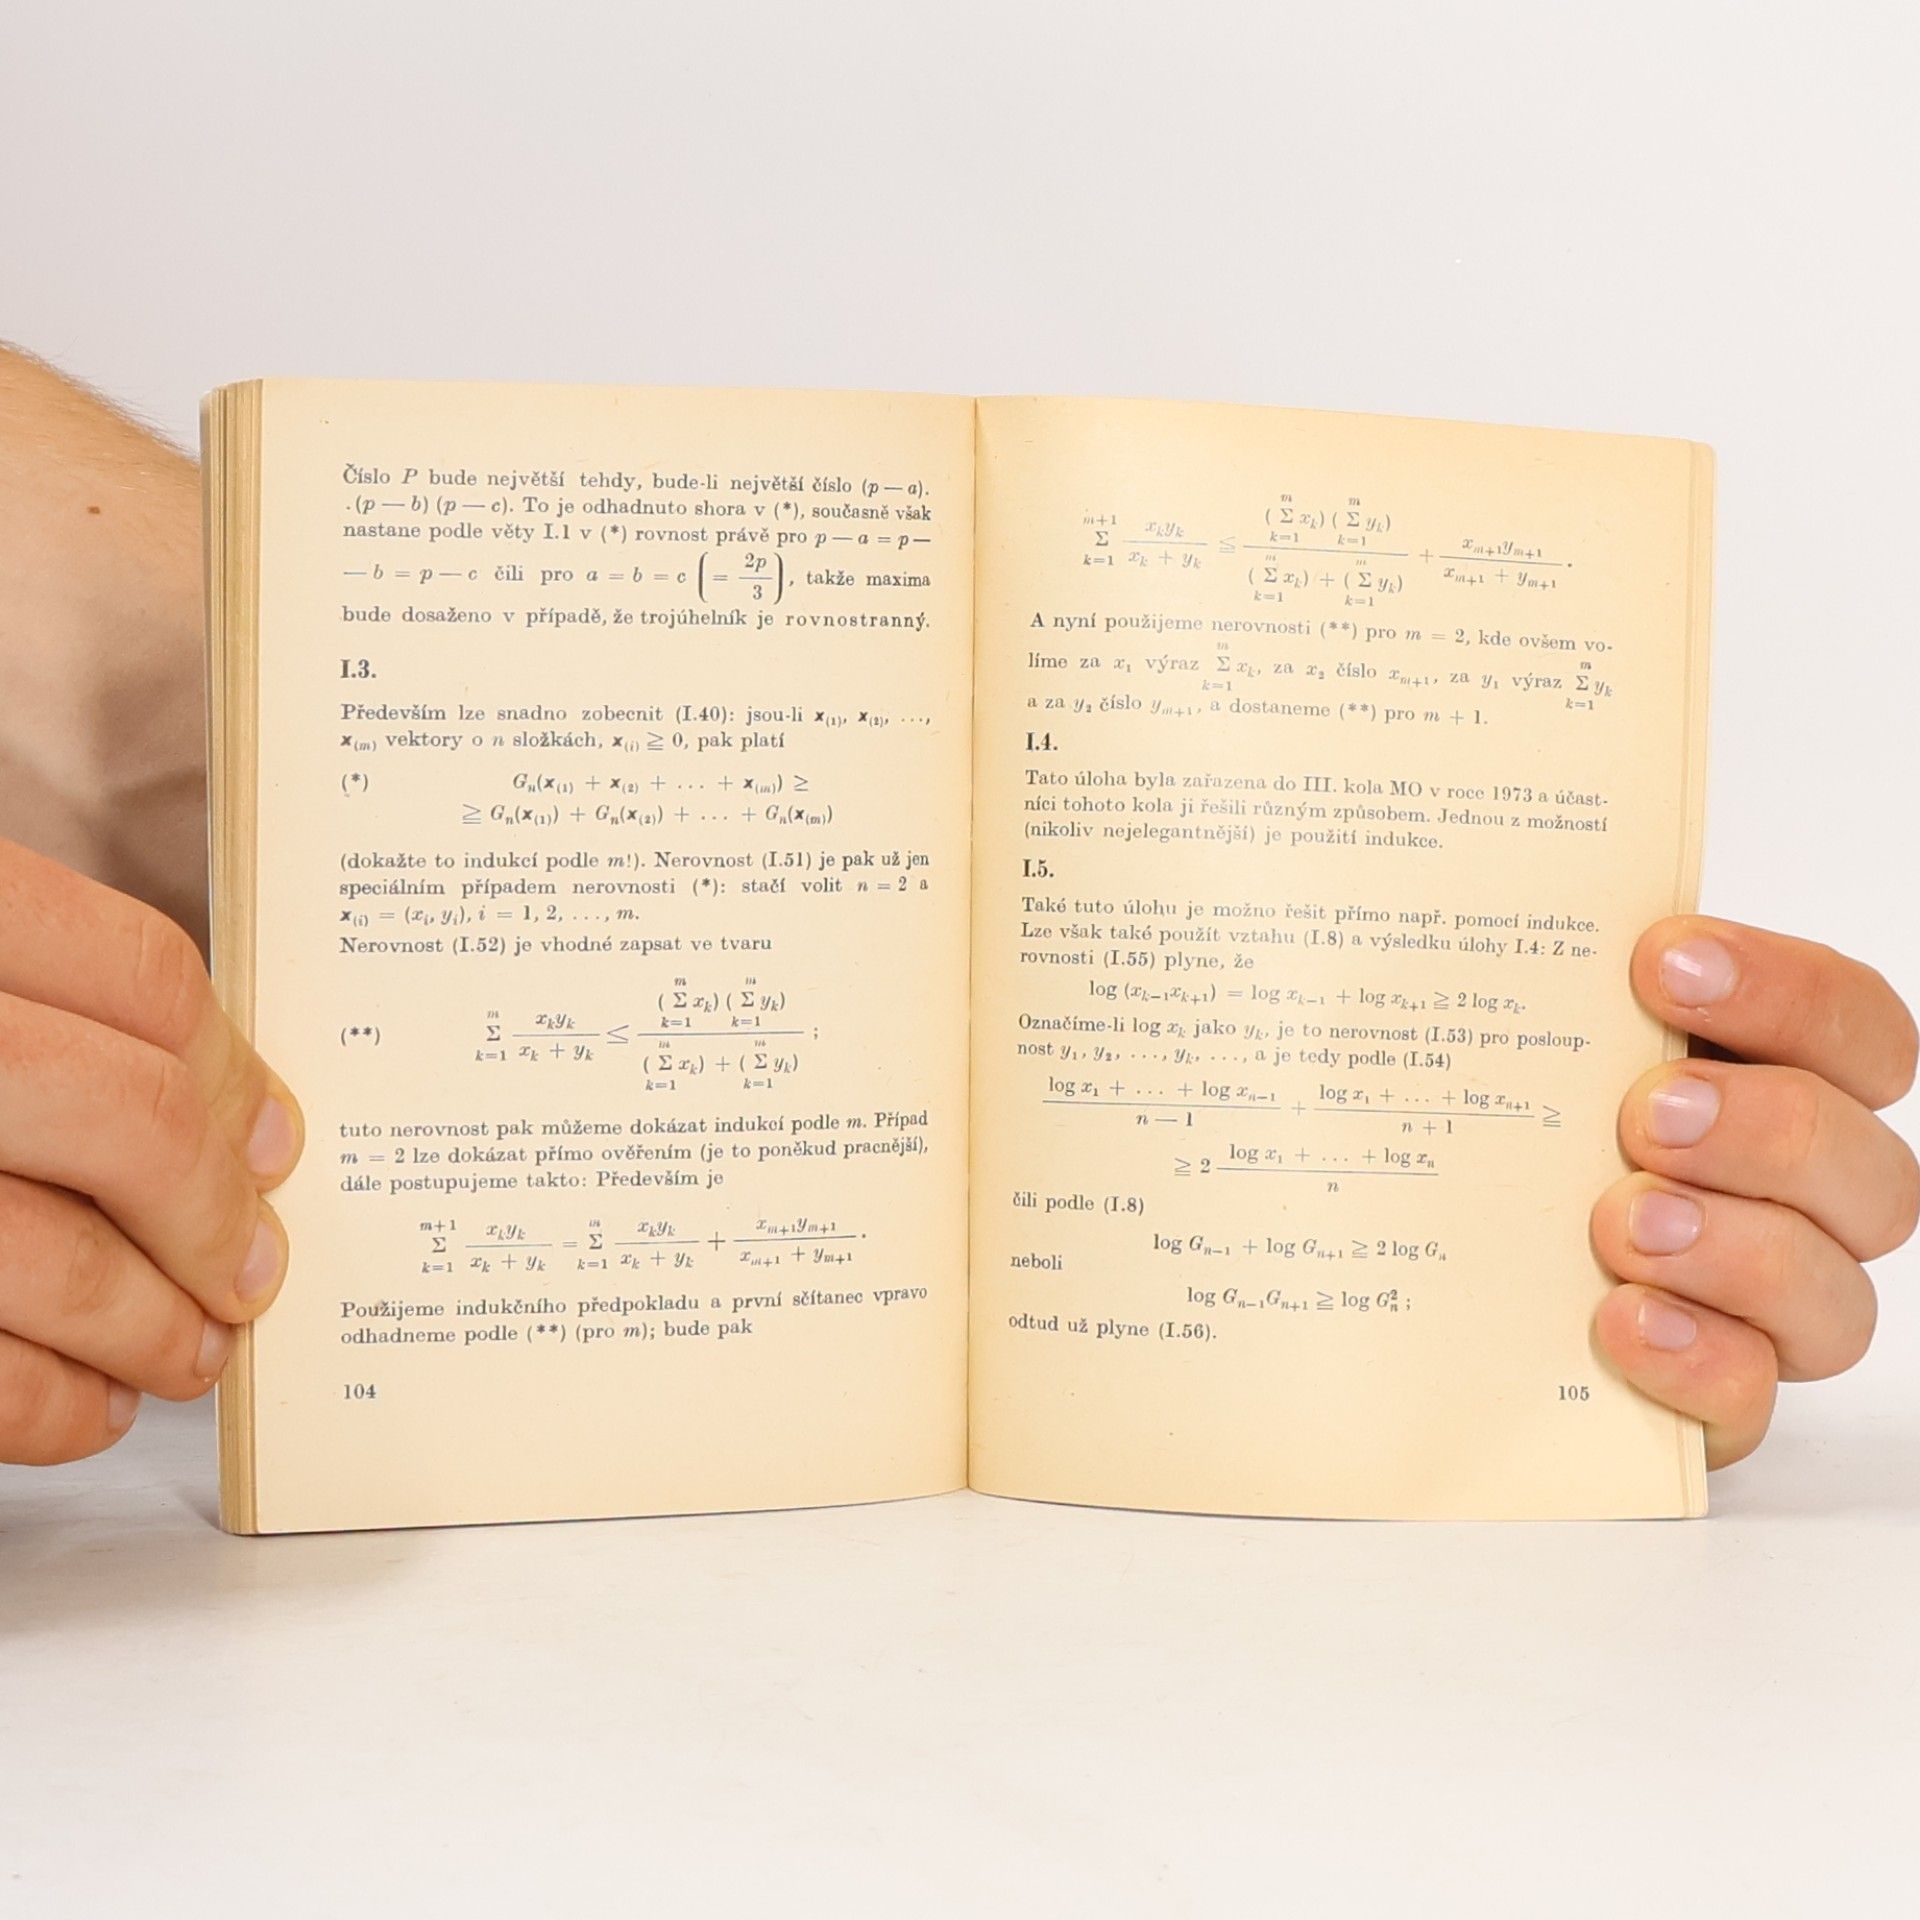 Číslo P bude největší tehdy, bude-li největší číslo (p — a).
. (p — b) (p — c). To je odhadnuto shora v (*), současně však
nastane podle věty I.1 v (*) rovnost právě pro p — a = p —
— b = p — c čili pro a = b = c (= 2p/3), takže maxima
bude dosaženo v případě, že trojúhelník je rovnostranný.
I.3.
Především lze snadno zobecnit (I.40): jsou-li x₍₁₎, x₍₂₎, ...,
x₍ₘ₎ vektory o n složkách, x₍ᵢ₎ ≧ 0, pak platí
(*) Gₙ(x₍₁₎ + x₍₂₎ + ... + x₍ₘ₎) ≥
≧ Gₙ(x₍₁₎) + Gₙ(x₍₂₎) + ... + Gₙ(x₍ₘ₎)
(dokažte to indukcí podle m!). Nerovnost (I.51) je pak už jen
speciálním případem nerovnosti (*): stačí volit n = 2 a
x₍ᵢ₎ = (xᵢ, yᵢ), i = 1, 2, ..., m.
Nerovnost (I.52) je vhodné zapsat ve tvaru
(**) Σ_{k=1}^{m} x_k y_k / (x_k + y_k) ≤ (Σ_{k=1}^{m} x_k) (Σ_{k=1}^{m} y_k) / ((Σ_{k=1}^{m} x_k) + (Σ_{k=1}^{m} y_k)) ;
tuto nerovnost pak můžeme dokázat indukcí podle m. Případ
m = 2 lze dokázat přímo ověřením (je to poněkud pracnější),
dále postupujeme takto: Především je
Σ_{k=1}^{m+1} x_k y_k / (x_k + y_k) = Σ_{k=1}^{m} x_k y_k / (x_k + y_k) + x_{m+1} y_{m+1} / (x_{m+1} + y_{m+1}) .
Použijeme indukčního předpokladu a první sčítanec vpravo
odhadneme podle (**) (pro m); bude pak
104
Σ_{k=1}^{m+1} x_k y_k / (x_k + y_k) ≦ (Σ_{k=1}^{m} x_k) (Σ_{k=1}^{m} y_k) / ((Σ_{k=1}^{m} x_k) + (Σ_{k=1}^{m} y_k)) + x_{m+1} y_{m+1} / (x_{m+1} + y_{m+1}) .
A nyní použijeme nerovnosti (**) pro m = 2, kde ovšem vo-
líme za x₁ výraz Σ_{k=1}^{m} x_k, za x₂ číslo x_{m+1}, za y₁ výraz Σ_{k=1}^{m} y_k
a za y₂ číslo y_{m+1}, a dostaneme (**) pro m + 1.
I.4.
Tato úloha byla zařazena do III. kola MO v roce 1973 a účast-
níci tohoto kola ji řešili různým způsobem. Jednou z možností
(nikoliv nejelegantnější) je použití indukce.
I.5.
Také tuto úlohu je možno řešit přímo např. pomocí indukce.
Lze však také použít vztahu (I.8) a výsledku úlohy I.4: Z ne-
rovnosti (I.55) plyne, že
log (x_{k—1}x_{k+1}) = log x_{k—1} + log x_{k+1} ≧ 2 log x_k.
Označíme-li log x_k jako y_k, je to nerovnost (I.53) pro posloup-
nost y₁, y₂, ..., y_k, ..., a je tedy podle (I.54)
(log x₁ + ... + log x_{n—1}) / (n — 1) + (log x₁ + ... + log x_{n+1}) / (n + 1) ≧
≧ 2 (log x₁ + ... + log x_n) / n
čili podle (I.8)
log G_{n—1} + log G_{n+1} ≧ 2 log G_n
neboli
log G_{n—1}G_{n+1} ≧ log G_n² ;
odtud už plyne (I.56).
105